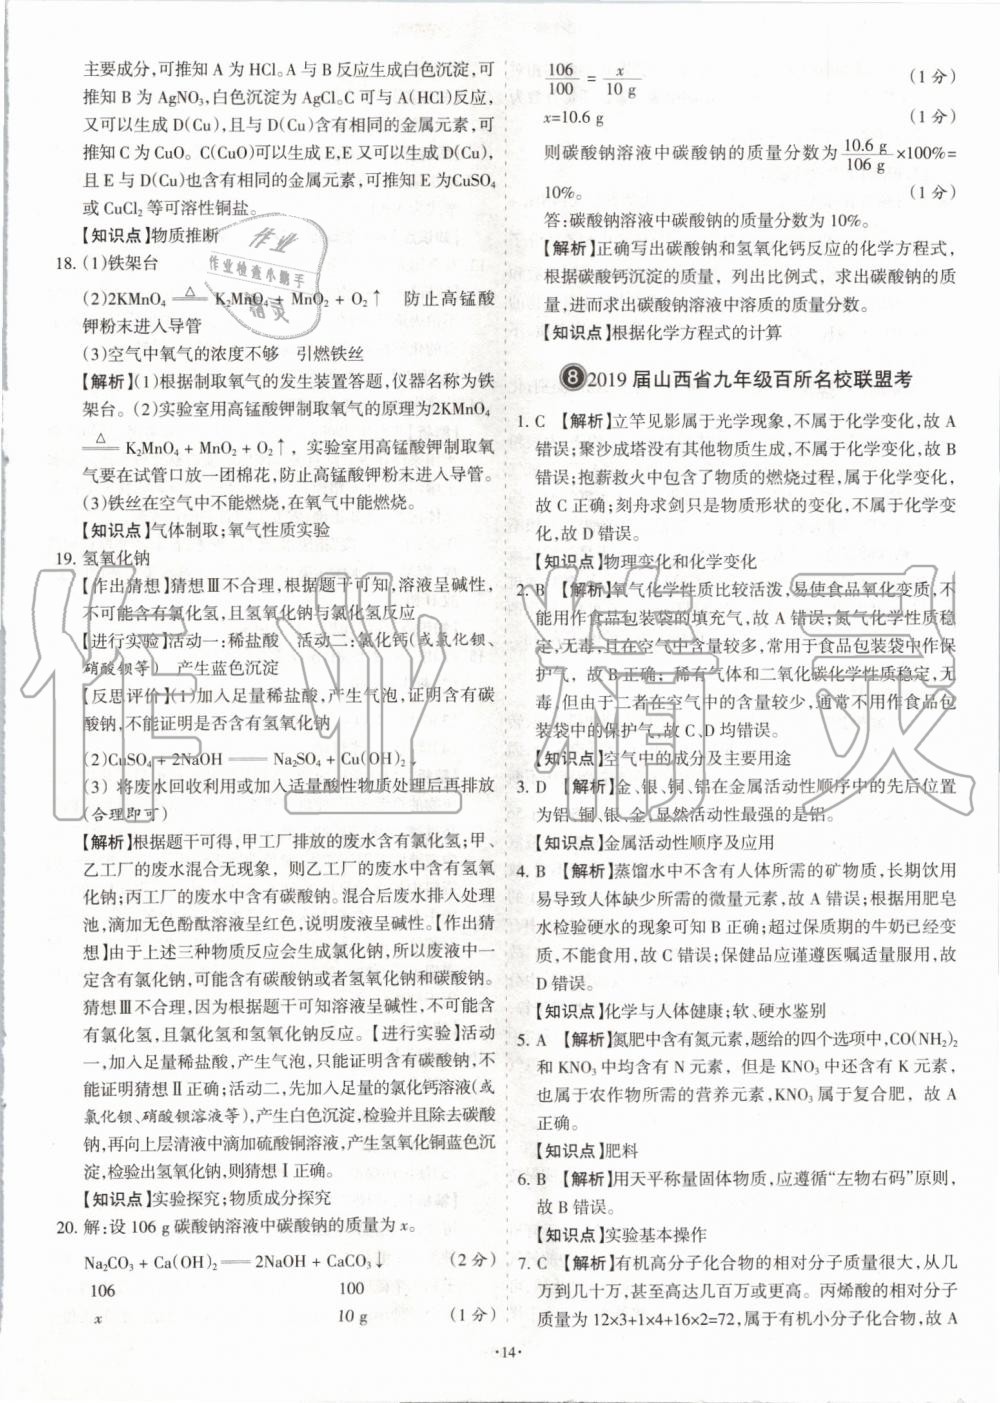 主要成分,可推知 A 为 HCl。A 与 B 反应生成白色沉淀,可
推知 B 为 AgNO₃,白色沉淀为 AgCl。C 可与 A(HCl)反应,
又可以生成 D(Cu),且与 D(Cu)含有相同的金属元素,可
推知 C 为 CuO。C(CuO)可以生成 E,E 又可以生成 D(Cu),
且 E 与 D(Cu)也含有相同的金属元素,可推知 E 为CuSO₄
或 CuCl₂ 等可溶性铜盐。
【知识点】物质推断
18. (1)铁架台
(2)2KMnO₄ ══△══ K₂MnO₄ + MnO₂ + O₂↑ 防止高锰酸
钾粉末进入导管
(3)空气中氧气的浓度不够 引燃铁丝
【解析】(1)根据制取氧气的发生装置答题,仪器名称为铁
架台。(2)实验室用高锰酸钾制取氧气的原理为2KMnO₄
══△══ K₂MnO₄ + MnO₂ + O₂↑,实验室用高锰酸钾制取氧
气要在试管口放一团棉花,防止高锰酸钾粉末进入导管。
(3)铁丝在空气中不能燃烧,在氧气中能燃烧。
【知识点】气体制取;氧气性质实验
19. 氢氧化钠
【作出猜想】猜想Ⅲ不合理,根据题干可知,溶液呈碱性,
不可能含有氯化氢,且氢氧化钠与氯化氢反应
【进行实验】活动一:稀盐酸 活动二:氯化钙(或氯化钡、
硝酸钡等) 产生蓝色沉淀
【反思评价】(1)加入足量稀盐酸,产生气泡,证明含有碳
酸钠,不能证明是否含有氢氧化钠
(2)CuSO₄ + 2NaOH ══ Na₂SO₄ + Cu(OH)₂↓
(3) 将废水回收利用或加入适量酸性物质处理后再排放
(合理即可)
【解析】根据题干可得,甲工厂排放的废水含有氯化氢;甲、
乙工厂的废水混合无现象, 则乙工厂的废水中含有氢氧
化钠;丙工厂的废水中含有碳酸钠。混合后废水排入处理
池,滴加无色酚酞溶液呈红色,说明废液呈碱性。【作出猜
想】由于上述三种物质反应会生成氯化钠,所以废液中一
定含有氯化钠,可能含有碳酸钠或者氢氧化钠和碳酸钠。
猜想Ⅲ不合理,因为根据题干可知溶液呈碱性,不可能含
有氯化氢,且氯化氢和氢氧化钠反应。【进行实验】活动
一,加入足量稀盐酸,产生气泡,只能证明含有碳酸钠,不
能证明猜想Ⅱ正确;活动二,先加入足量的氯化钙溶液(或
氯化钡、硝酸钡溶液等),产生白色沉淀,检验并且除去碳酸
钠,再向上层清液中滴加硫酸铜溶液,产生氢氧化铜蓝色沉
淀,检验出氢氧化钠,则猜想Ⅰ正确。
【知识点】实验探究;物质成分探究
20. 解:设 106 g 碳酸钠溶液中碳酸钠的质量为 x。
Na₂CO₃ + Ca(OH)₂ ══ 2NaOH + CaCO₃↓ (2 分)
106 100
x 10 g (1 分)
106/100 = x/10 g (1 分)
x=10.6 g (1 分)
则碳酸钠溶液中碳酸钠的质量分数为 10.6 g/106 g ×100%=
10%。 (1 分)
答:碳酸钠溶液中碳酸钠的质量分数为 10%。
【解析】正确写出碳酸钠和氢氧化钙反应的化学方程式,
根据碳酸钙沉淀的质量, 列出比例式, 求出碳酸钠的质
量,进而求出碳酸钠溶液中溶质的质量分数。
【知识点】根据化学方程式的计算
8 2019 届山西省九年级百所名校联盟考
1. C 【解析】立竿见影属于光学现象,不属于化学变化,故 A
错误;聚沙成塔没有其他物质生成,不属于化学变化,故 B
错误;抱薪救火中包含了物质的燃烧过程,属于化学变化,
故 C 正确;刻舟求剑只是物质形状的变化,不属于化学变
化,故 D 错误。
【知识点】物理变化和化学变化
2. B 【解析】氧气化学性质比较活泼,易使食品氧化变质,不
能用作食品包装袋的填充气,故 A 错误;氮气化学性质稳
定,无毒,且在空气中含量较多,常用于食品包装袋中作保
护气, 故 B 正确;稀有气体和二氧化碳化学性质稳定,无
毒,但由于二者在空气中的含量较少,通常不用作食品包
装袋中的保护气,故 C、D 均错误。
【知识点】空气中的成分及主要用途
3. D 【解析】金、银、铜、铝在金属活动性顺序中的先后位置
为铝、铜、银、金,显然活动性最强的是铝。
【知识点】金属活动性顺序及应用
4. B 【解析】蒸馏水中不含有人体所需的矿物质,长期饮用
易导致人体缺少所需的微量元素,故 A 错误;根据用肥皂
水检验硬水的现象可知 B 正确;超过保质期的牛奶已经变
质,不能食用,故 C 错误;保健品应谨遵医嘱适量服用,故
D 错误。
【知识点】化学与人体健康;软、硬水鉴别
5. A 【解析】氮肥中含有氮元素,题给的四个选项中,CO(NH₂)₂
和 KNO₃ 中均含有 N 元素, 但是 KNO₃ 中还含有 K 元素,
也属于农作物所需的营养元素,KNO₃ 属于复合肥, 故 A
正确。
【知识点】肥料
6. B 【解析】用天平称量固体物质,应遵循“左物右码”原则,
故 B 错误。
【知识点】实验基本操作
7. C 【解析】有机高分子化合物的相对分子质量很大,从几
万到几十万,甚至高达几百万或更高。丙烯酸的相对分子
质量为 12×3+1×4+16×2=72,属于有机小分子化合物,故 A
·14·
作业
作业检查小助手
精灵
作业精灵